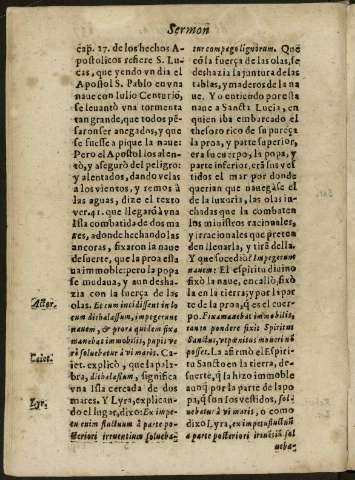 Sermon
cap. 27. de los hechos A-
postolicos refiere S. Lu-
cas, que yendo vn dia el
Apostol S. Pablo en vna
naue con Iulio Centuriõ,
se leuantò vna tormenta
tan grande, que todos pē-
saron ser anegados, y que
se fuesse a pique la naue:
Pero el Apostol los alen-
tò, y aseguró del peligro:
y alentados, dando velas
a los vientos, y remos à
las aguas, dize el texto
ver. 41. que llegarõ à vna
Isla combatida de dos ma
res, adonde hechando las
ancoras, fixaron la naue
de suerte, que la proa esta
ua immoble: pero la popa
se mudaua, y aun desha-
zia con la fuerça de las
Actor.
olas. Et cum incidissent in lo
cum dithalassum, impegerunt
nauem, & prora quidem fixa
manebat immobilis, pupis ve
Caiet.
rò soluebatur à vi maris. Ca-
iet. explicò, que la pala-
bra, dithalassum, significa
vna Isla cercada de dos
Lyr.
mares. Y Lyra, explican-
do el lugar, dixo: Ex impe-
tu enim fluctuum à parte po-
steriori irruentium solueba-
tur compago lignorum. Que
cõ la fuerça de las olas, se
deshazia la juntura de las
tablas, y maderos de la na
ue. Y o entiendo por esta
naue a Sancta Lucia, en
quien iba embarcado el
thesoro rico de su pureça
la proa, y parte superior,
era su cuerpo, la popa, y
parte inferior, erã sus ves
tidos el mar por donde
querian que nauegase el
de la luxuria, las olas in-
chadas que la combaten
los ministros racionales,
y irracionales que preten
den llenarla, y tirã della.
Y que sucediò? Impegerunt
nauem: El espiritu diuino
fixò la naue, encallo, fixó
la en la tierra; y por la par
te de la proa, q es el cuer
po. Fixa manebat immobilis,
tanto pondere fixit Spiritus
Sanctus, vt penitus moueri nõ
posset. La afirmò el Espiri-
tu Sancto en la tierra, de-
suerte, q la hizo immoble
aunq por la parte de la po
pa, q son los vestidos, sol
uebatur à vi maris, ò como
dixo Lyra, ex impetu fluctuũ
a parte posteriori irruẽtiũ sol
ueba-